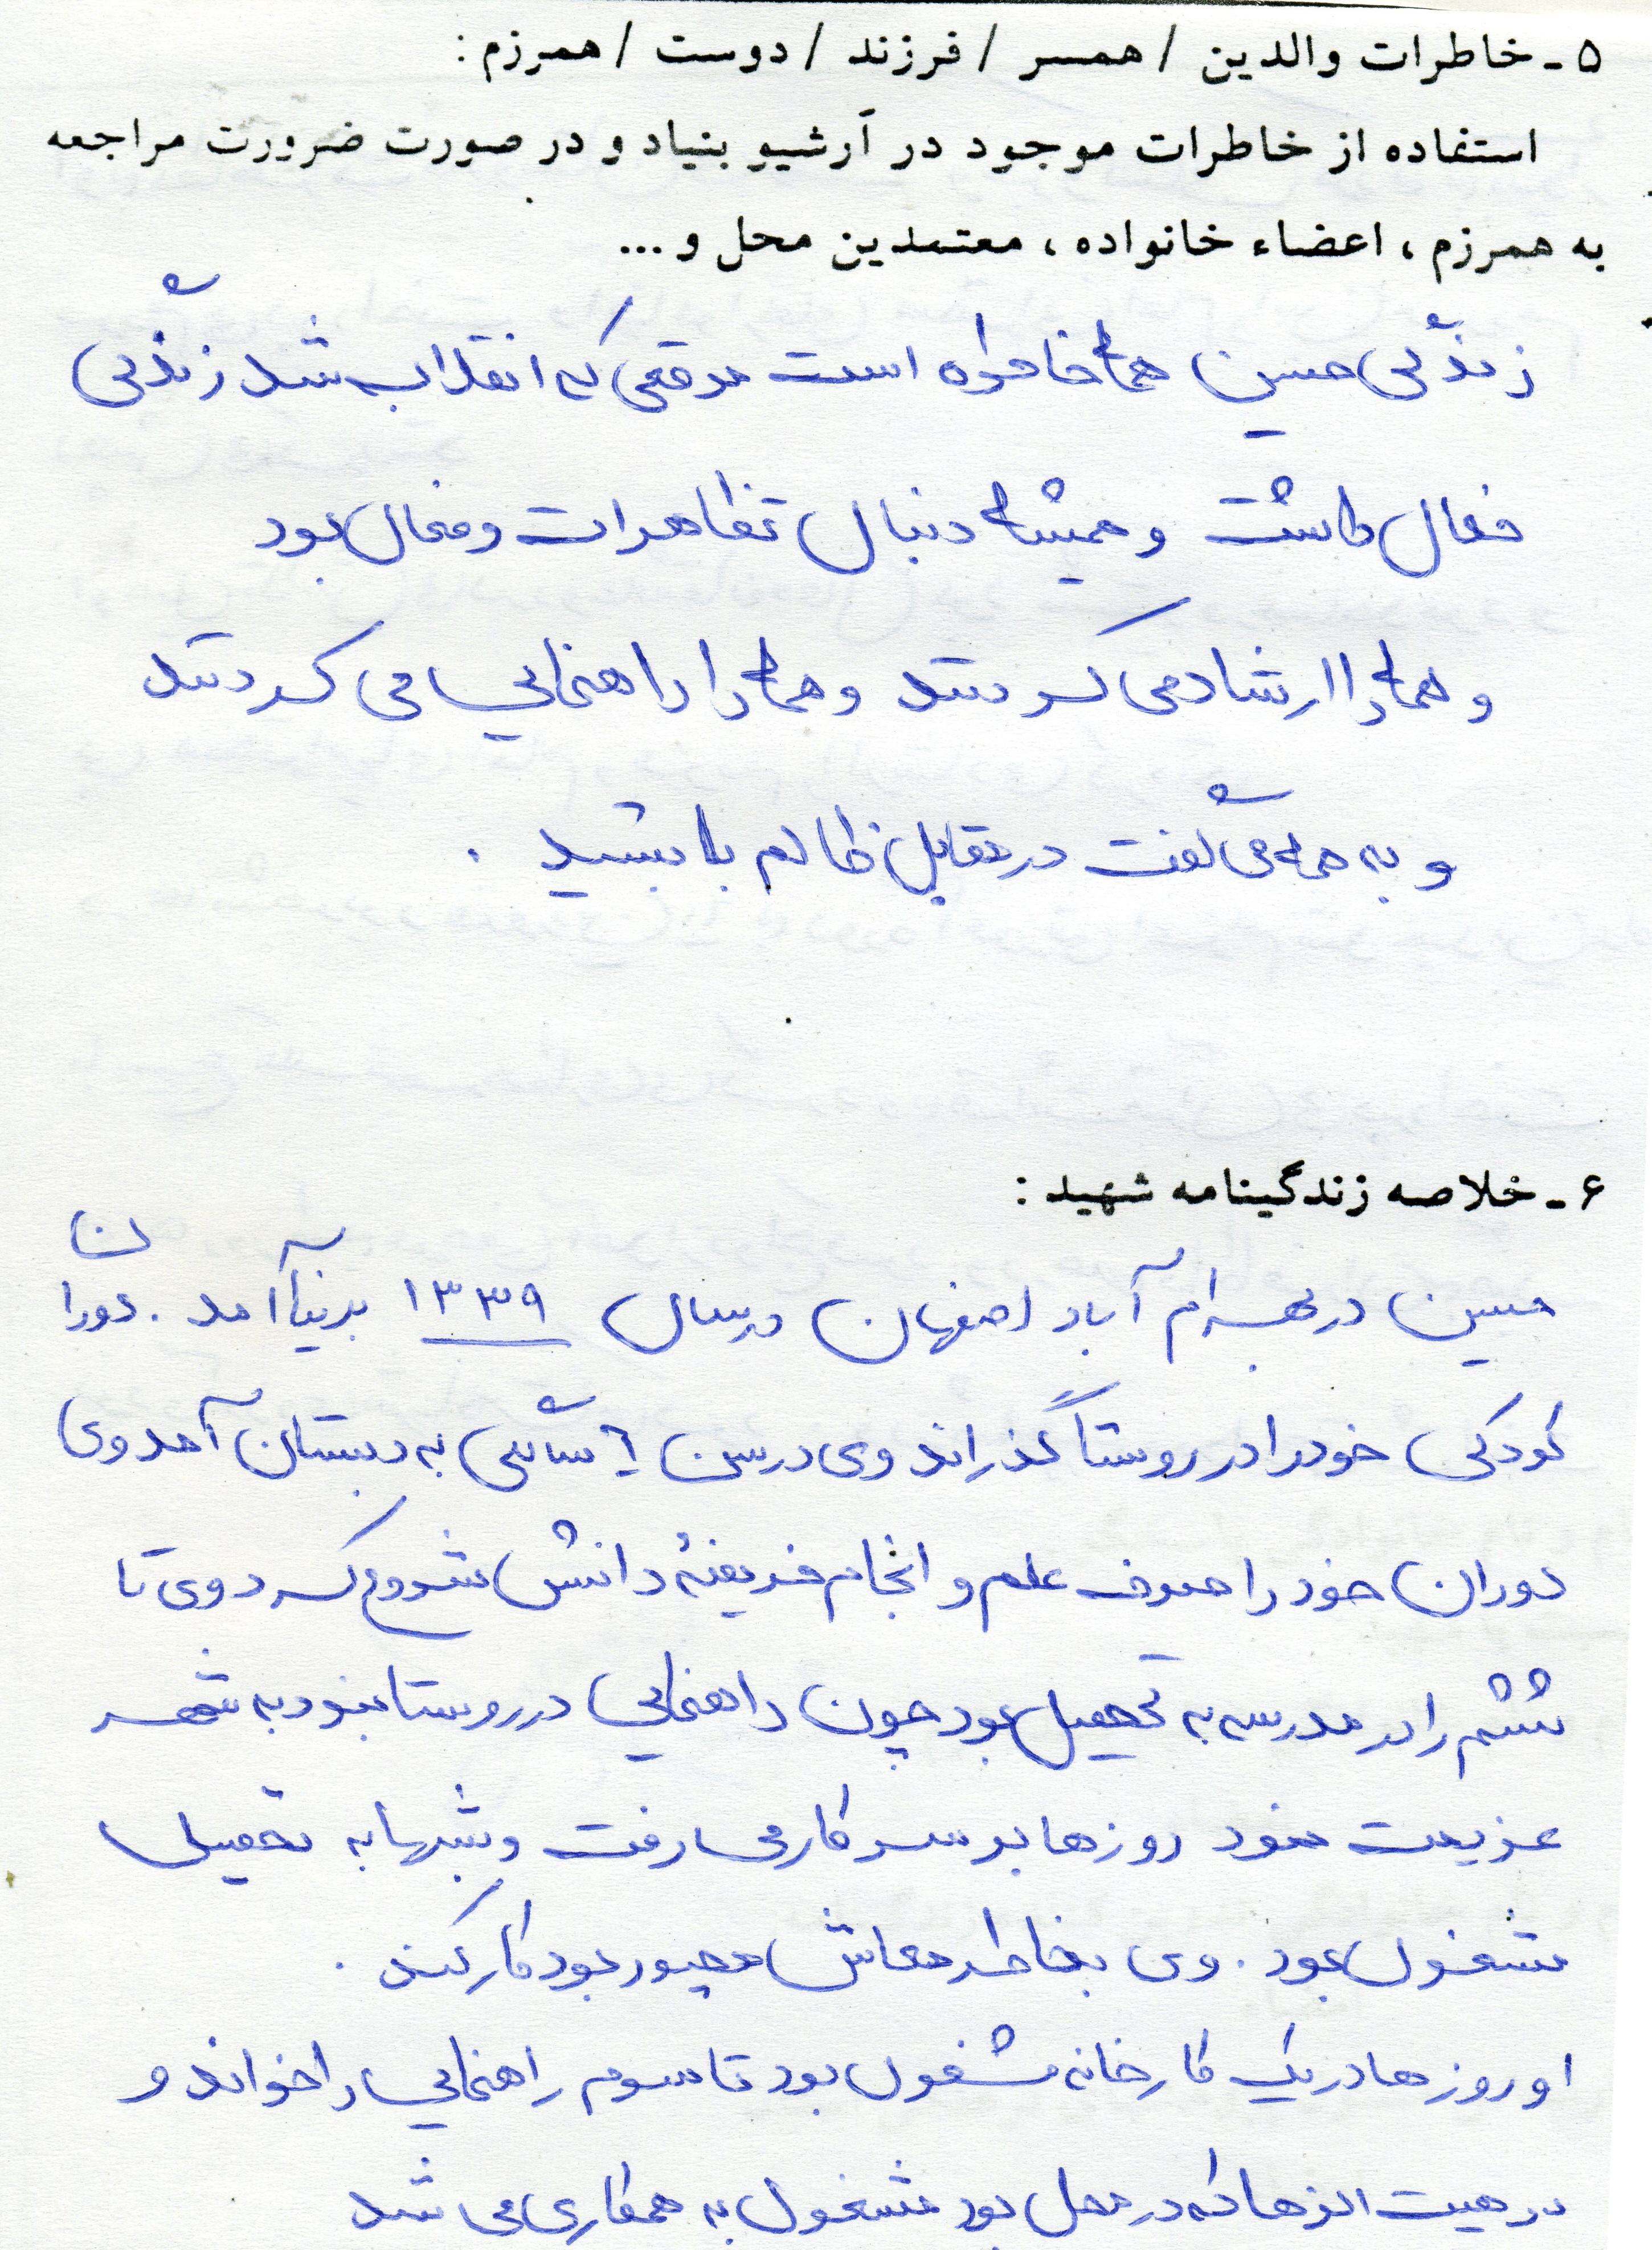 ۵ - خاطرات والدین / همسر / فرزند / دوست / همرزم :
استفاده از خاطرات موجود در آرشیو بنیاد و در صورت ضرورت مراجعه
به همرزم ، اعضاء خانواده ، معتمدین محل و ...
زندگی حسین همه خاطره است موقعی که انقلاب شد زندگی
فعال داشت و همیشه دنبال تظاهرات و فعال بود
و همه را ارشاد می کردند و همه را راهنمایی می کردند
و به همه می گفت در مقابل ظالم بایستید .
۶ - خلاصه زندگینامه شهید :
حسین در بهرام آباد اصفهان در سال ۱۳۳۹ بدنیا آمد . دوران
کودکی خود را در روستا گذراند وی در سن ۶ سالگی به دبستان آمد وی
دوران خود را صرف علم و انجام فریضهٔ دانش شروع کرد وی تا
ششم را در مدرسه به تحصیل بود چون راهنمایی در روستا نبود به شهر
عزیمت نمود روزها بر سر کار می رفت و شبها به تحصیل
مشغول بود . وی بخاطر معاش مجبور بود کار کند .
او روزها در یک کارخانه مشغول بود تا سوم راهنمایی را خواند و
در هیئت که در محل بود مشغول به همکاری می شد